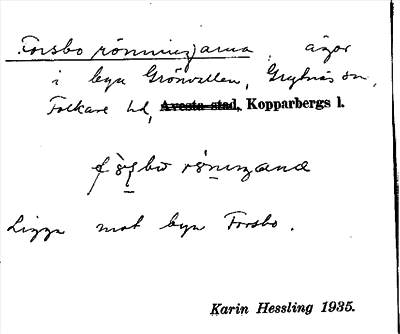 Forsbo rönningarna, ägor
i byn Grönvallen, Grytnäs sn,
Folkare hd, Avesta stad, Kopparbergs l.
Ligga mot byn Forsbo.
Karin Hessling 1935.